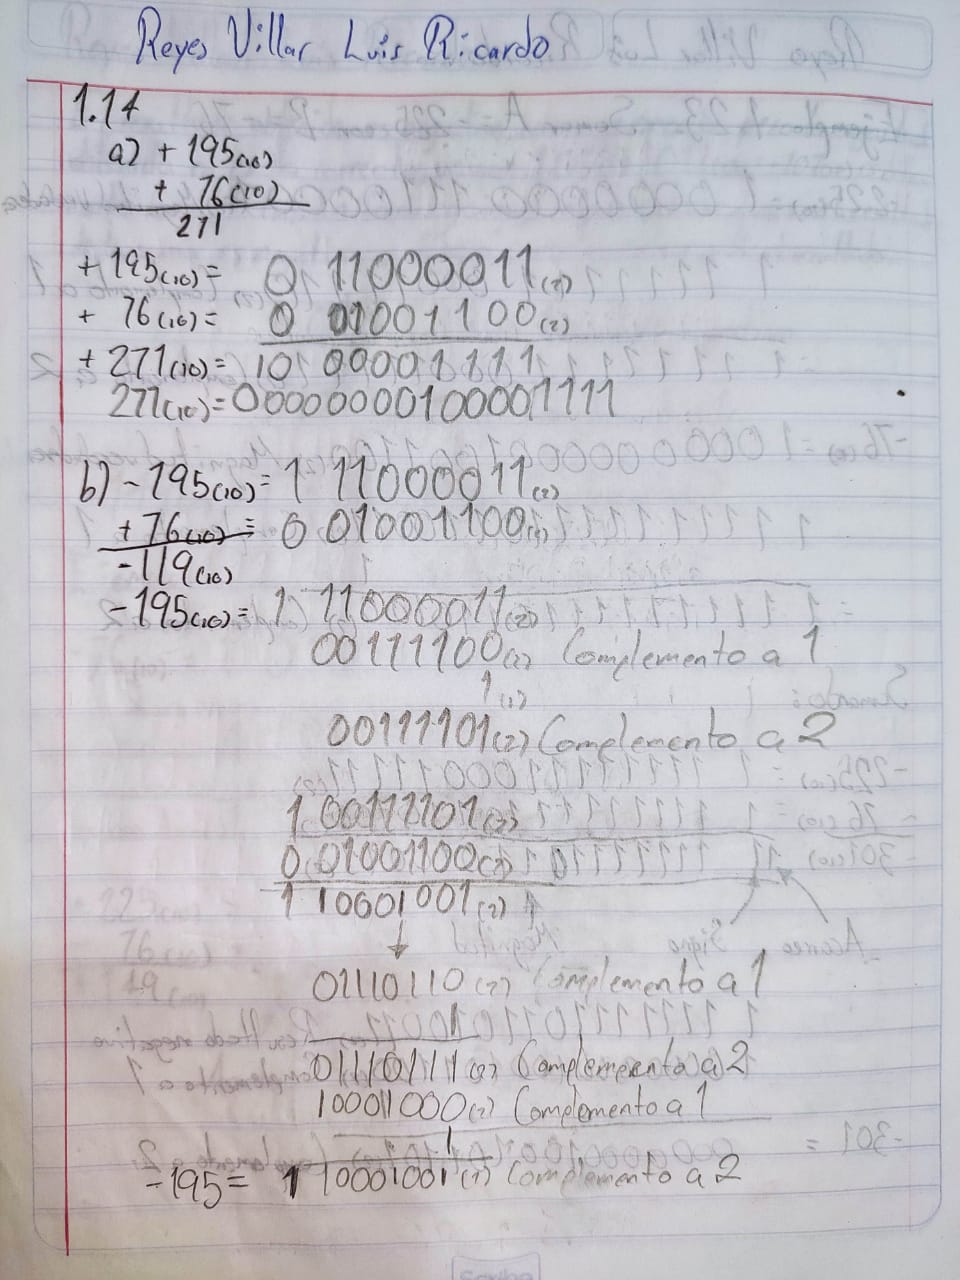 Reyes Villar Luis Ricardo
1.14
a) + 195(10)
+ 76(10)
271
+ 195(10) = 0 11000011(2)
+ 76(10) = 0 01001100(2)
+ 271(10) = 10 00001111
271(10) = 0000000100001111
b) - 195(10) = 1 11000011(2)
+ 76(10) = 0 01001100(2)
- 119(10)
- 195(10) = 1 11000011(2)
00111100(2) Complemento a 1
1(2)
00111101(2) Complemento a 2
1 00111101(2)
0 01001100(2)
1 10001001(2)
01110110(2) Complemento a 1
1
01110111(2) Complemento a 2
10001000(2) Complemento a 1
1
- 195 = 1 10001001(2) Complemento a 2